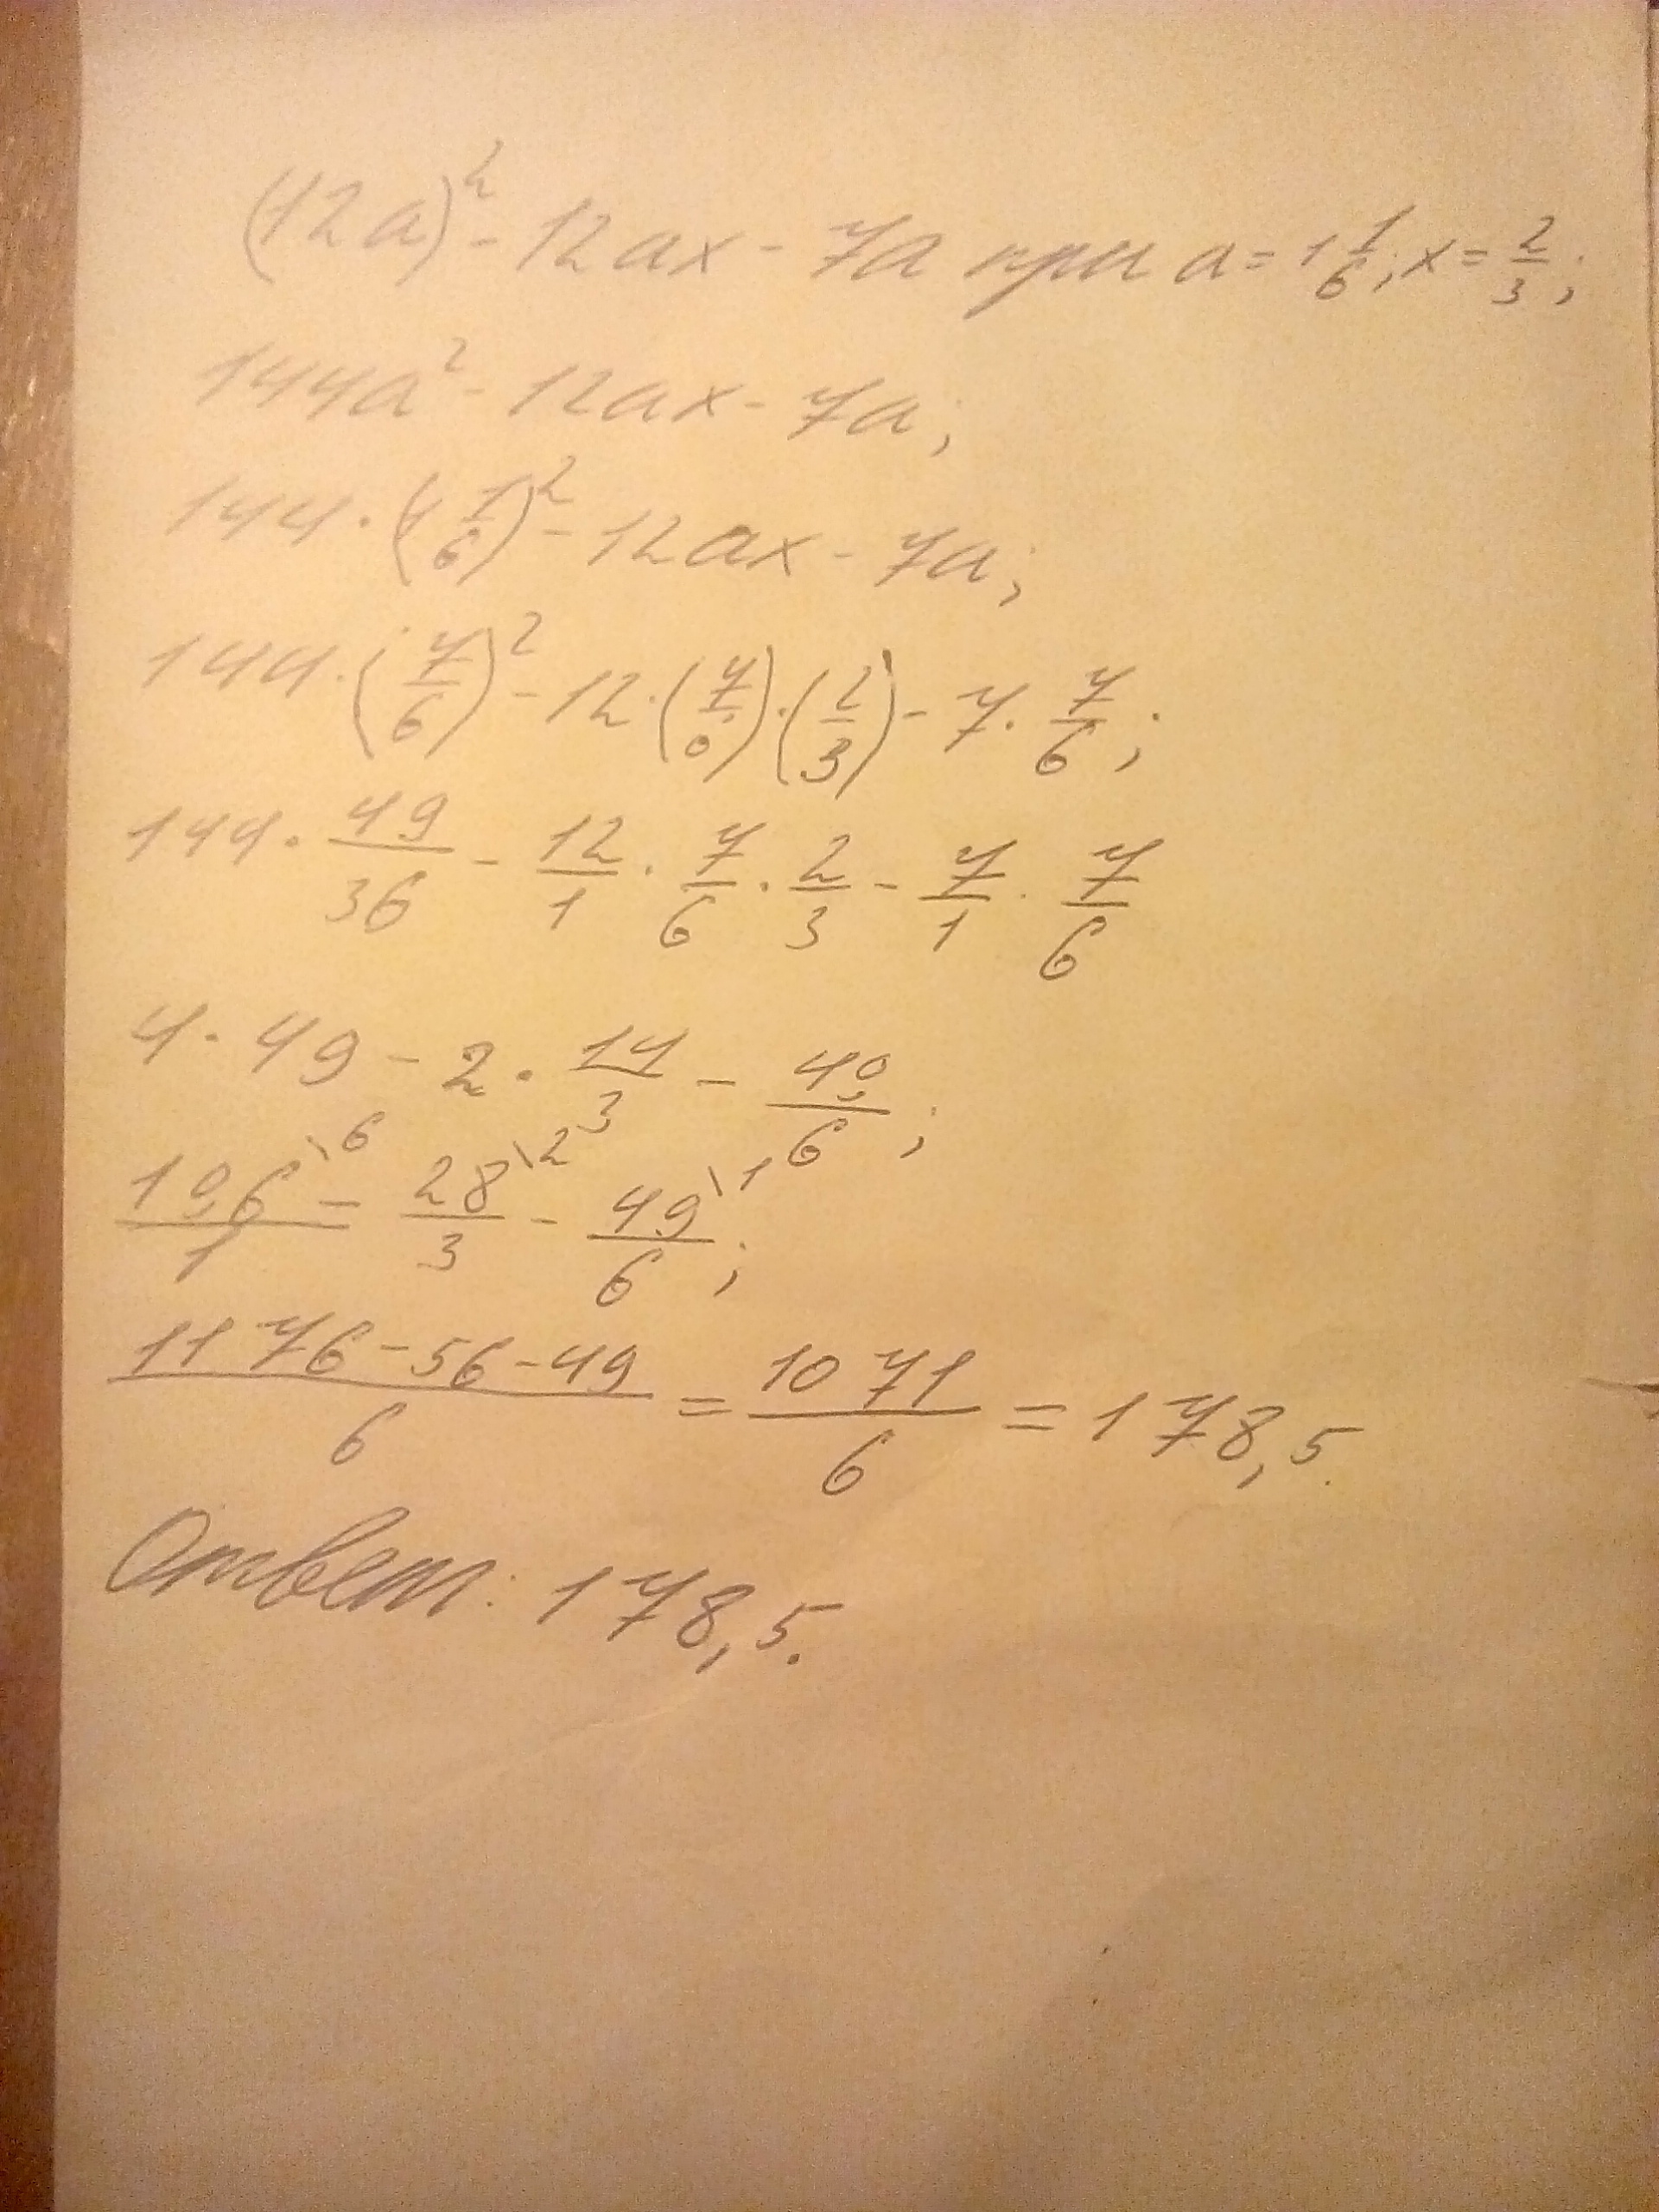 (12a)² - 12ax - 7a при a = 1 1/6; x = 2/3;
144a² - 12ax - 7a;
144 · (1 1/6)² - 12ax - 7a;
144 · (7/6)² - 12 · (7/6) · (2/3) - 7 · 7/6;
144 · 49/36 - 12/1 · 7/6 · 2/3 - 7/1 · 7/6
4 · 49 - 2 · 14/3 - 49/6;
196/1 \6 - 28/3 \2 - 49/6 \1;
(1176 - 56 - 49)/6 = 1071/6 = 178,5.
Ответ: 178,5.